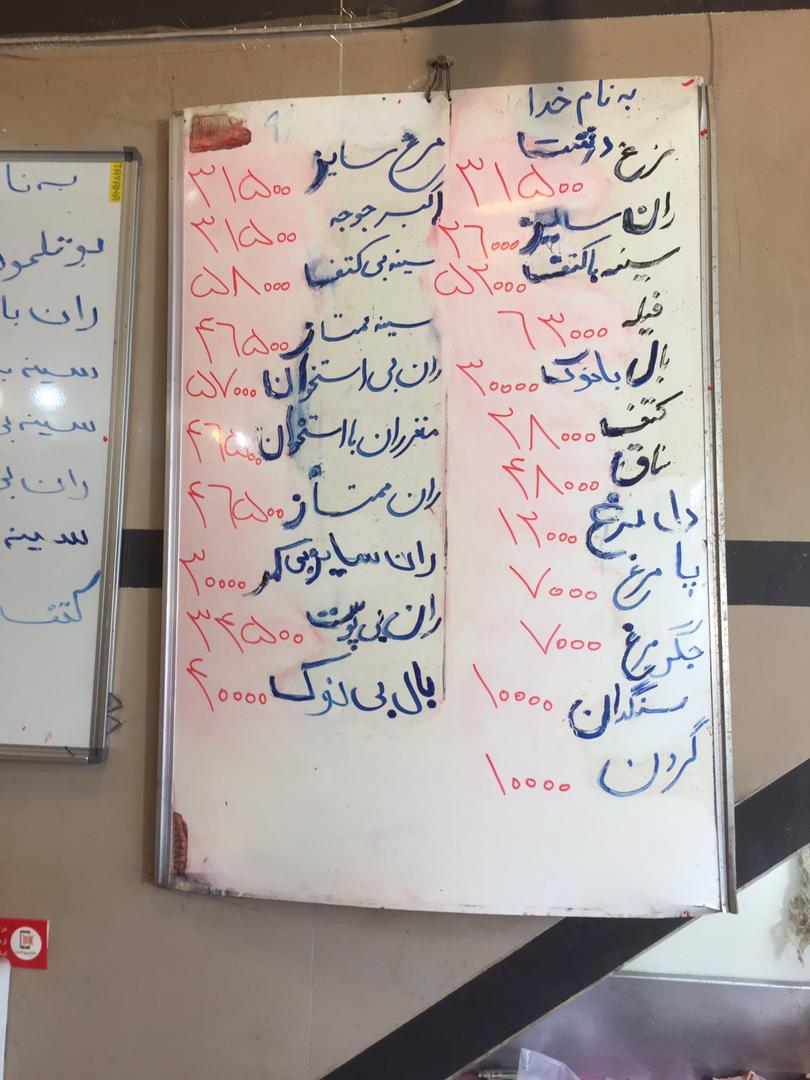 به نام خدا
مرغ درشت ۳۱۵۰۰
ران سایز ۲۶۰۰۰
سینه باکتف ۵۲۰۰۰
فیله ۶۳۰۰۰
بال بانوک ۳۰۰۰۰
کتف ۲۸۰۰۰
ساق ۴۸۰۰۰
دل مرغ ۱۲۰۰۰
پا مرغ ۷۰۰۰
جگر مرغ ۷۰۰۰
سنگدان ۱۰۰۰۰
گردن ۱۰۰۰۰
مرغ سایز ۳۱۵۰۰
اکبر جوجه ۳۱۵۰۰
سینه بی کتف ۵۸۰۰۰
سینه ممتاز ۴۶۵۰۰
ران بی استخوان ۵۷۰۰۰
مغز ران با استخوان ۴۶۵۰۰
ران ممتاز ۴۶۵۰۰
ران سایز بی کمر ۳۰۰۰۰
ران بی پوست ۳۴۵۰۰
بال بی نوک ۴۰۰۰۰
TAYANA
به نا
بوقلمون
ران با
سینه ب
سینه بی
ران بی
سینه
کتف